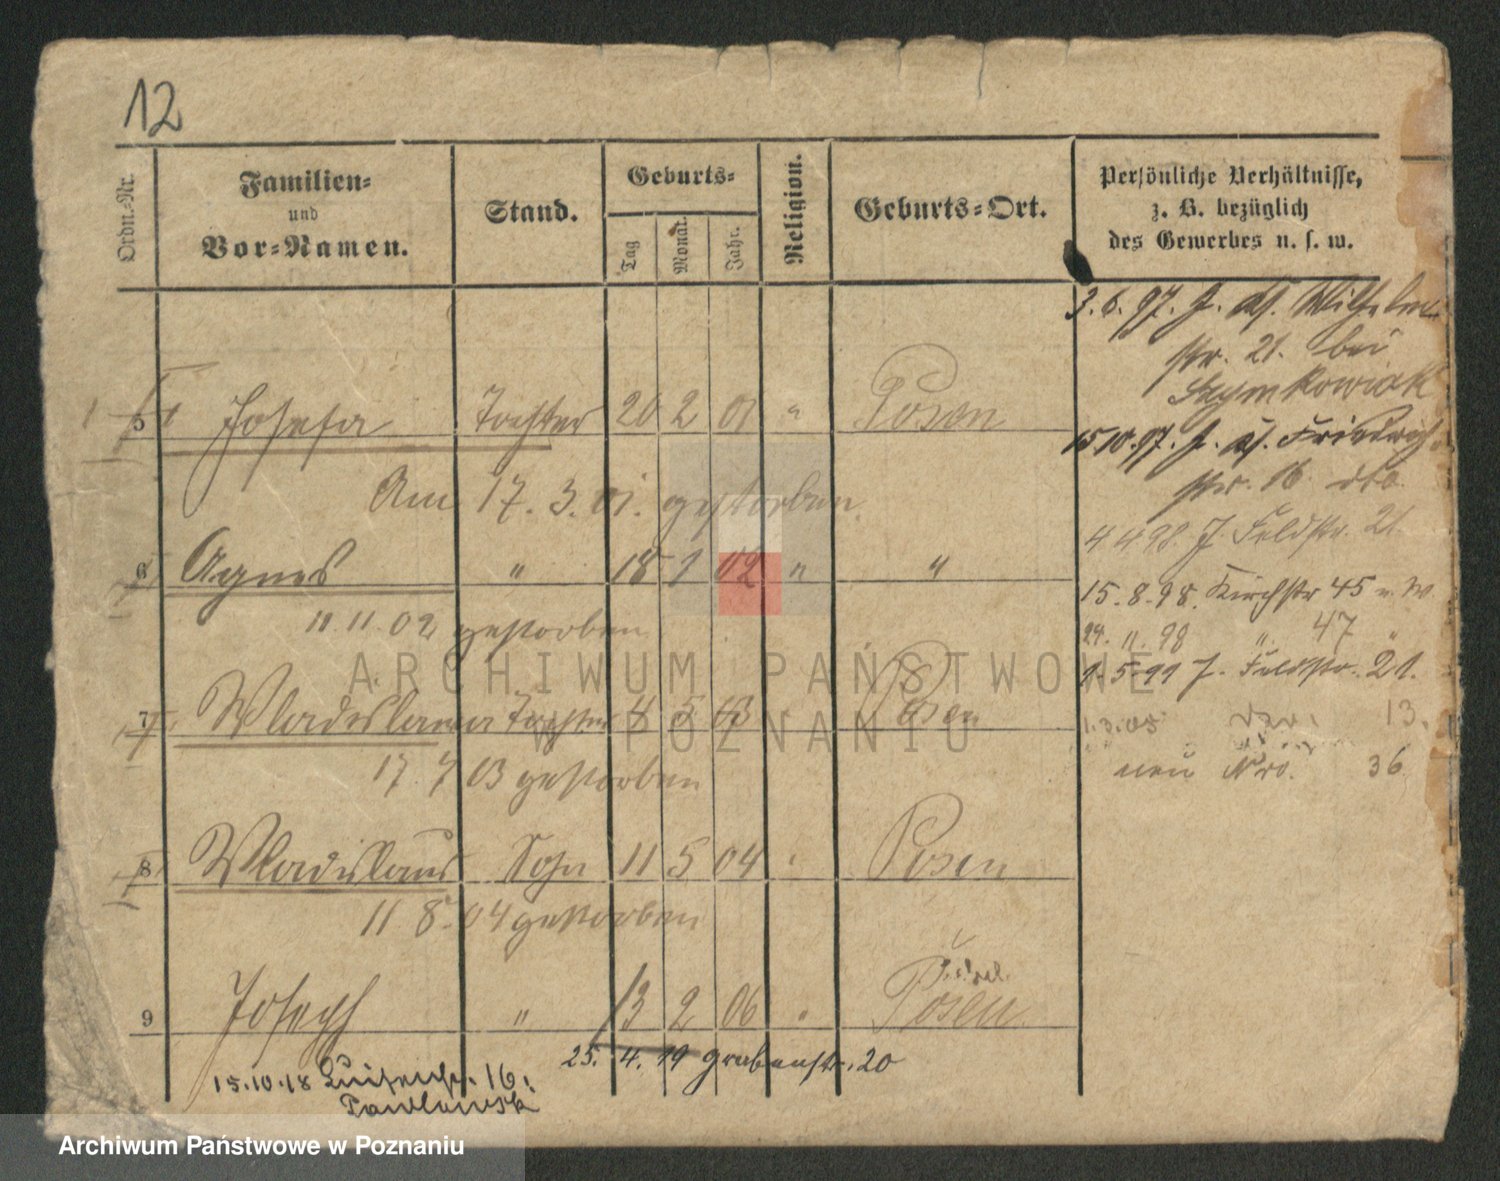 12
Ordn.-Nr.
Familien-
und
Vor-Namen.
Stand.
Geburts-
Tag
Monat.
Jahr.
Religion.
Geburts-Ort.
Persönliche Verhältnisse,
z. B. bezüglich
des Gewerbes u. s. w.
3.6.97. J. Wilhelm
str. 21. bei
Szymkowiak
5 Josefa Tochter 20 2 01 " Posen
15 10.97. J. Friedrich
str. 16. dto
Am 17. 3. 01. gestorben
4 4 98. J. Feldstr. 21.
6 Agnes " 18 1 02 " "
15.8.98. Kirchstr 45 v. W
11.11.02 gestorben
24.11.98 " 47 "
1.5.99 J. Feldstr. 21.
7 Wladislawa Tochter 4 5 03 " Posen
1.3.05 13.
17. 7 03 gestorben
neu Nro. 36
8 Wladislaus Sohn 11 5 04 " Posen
11 8. 04 gestorben
9 Joseph " 13 2 06 " Posen
25. 4. 19 Grabenstr. 20
15.10.18 Luisenstr. 16.
Pawlowski
ARCHIWUM PAŃSTWOWE
W POZNANIU
Archiwum Państwowe w Poznaniu